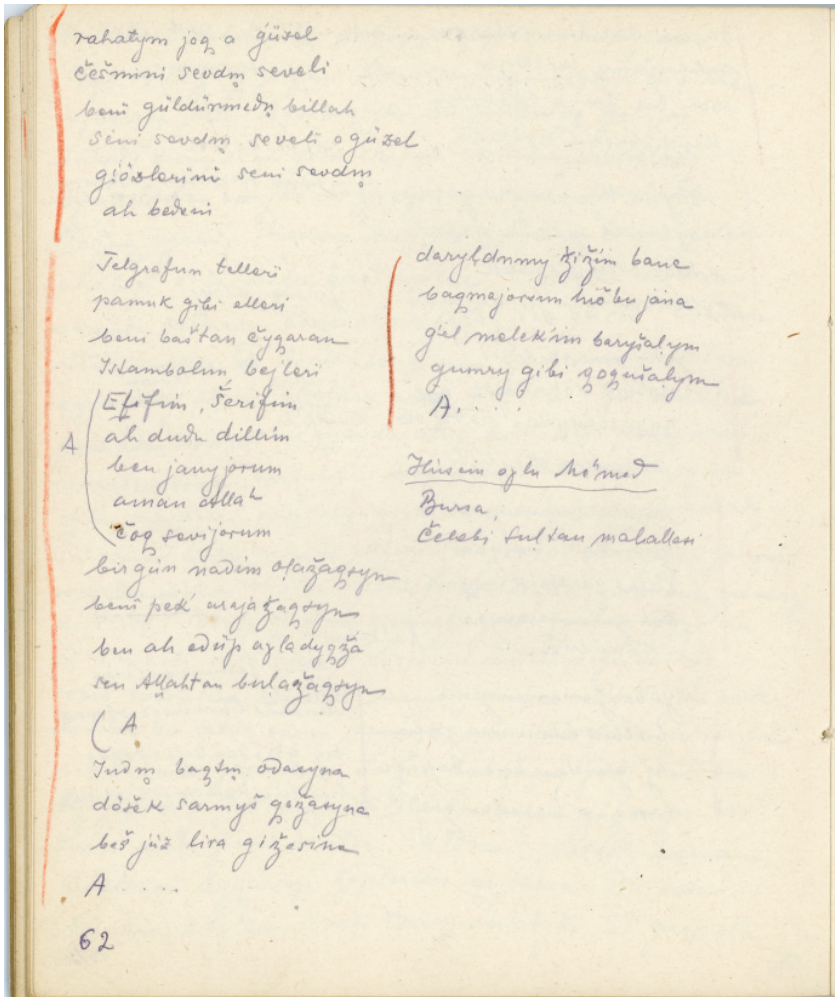 rahatym joq a güzel
češmini sevdm̥ seveli
beni güldürmedn̥ billah
seni sevdm̥ seveli o güzel
giözlerini seni sevdm̥
ah bedeni
Telgrafun telleri
pamuk gibi elleri
beni baštan čyqaran
Istambolun bejleri
A
Efifim, Šerifim
ah dudu dillim
ben janyjorum
aman Allah
čoq sevijorum
birgün nadim olažaqsyn
beni pek arajažaqsyn
ben ah edüp agladyqža
sen Allahtan bulažaqsyn
( A
Indm̥ baqtm̥ odasyna
döšek sarmyš qožasyna
beš jüz lira gižesine
A . . . .
daryldnmy žižim bana
baqmajorsun hiö bu jana
g'el melek'im baryšalym
gumry gibi qoqušalym
A. . . . .
Hüsein oglu Mémed
Bursa,
Čelebi Sultan mahallesi
62